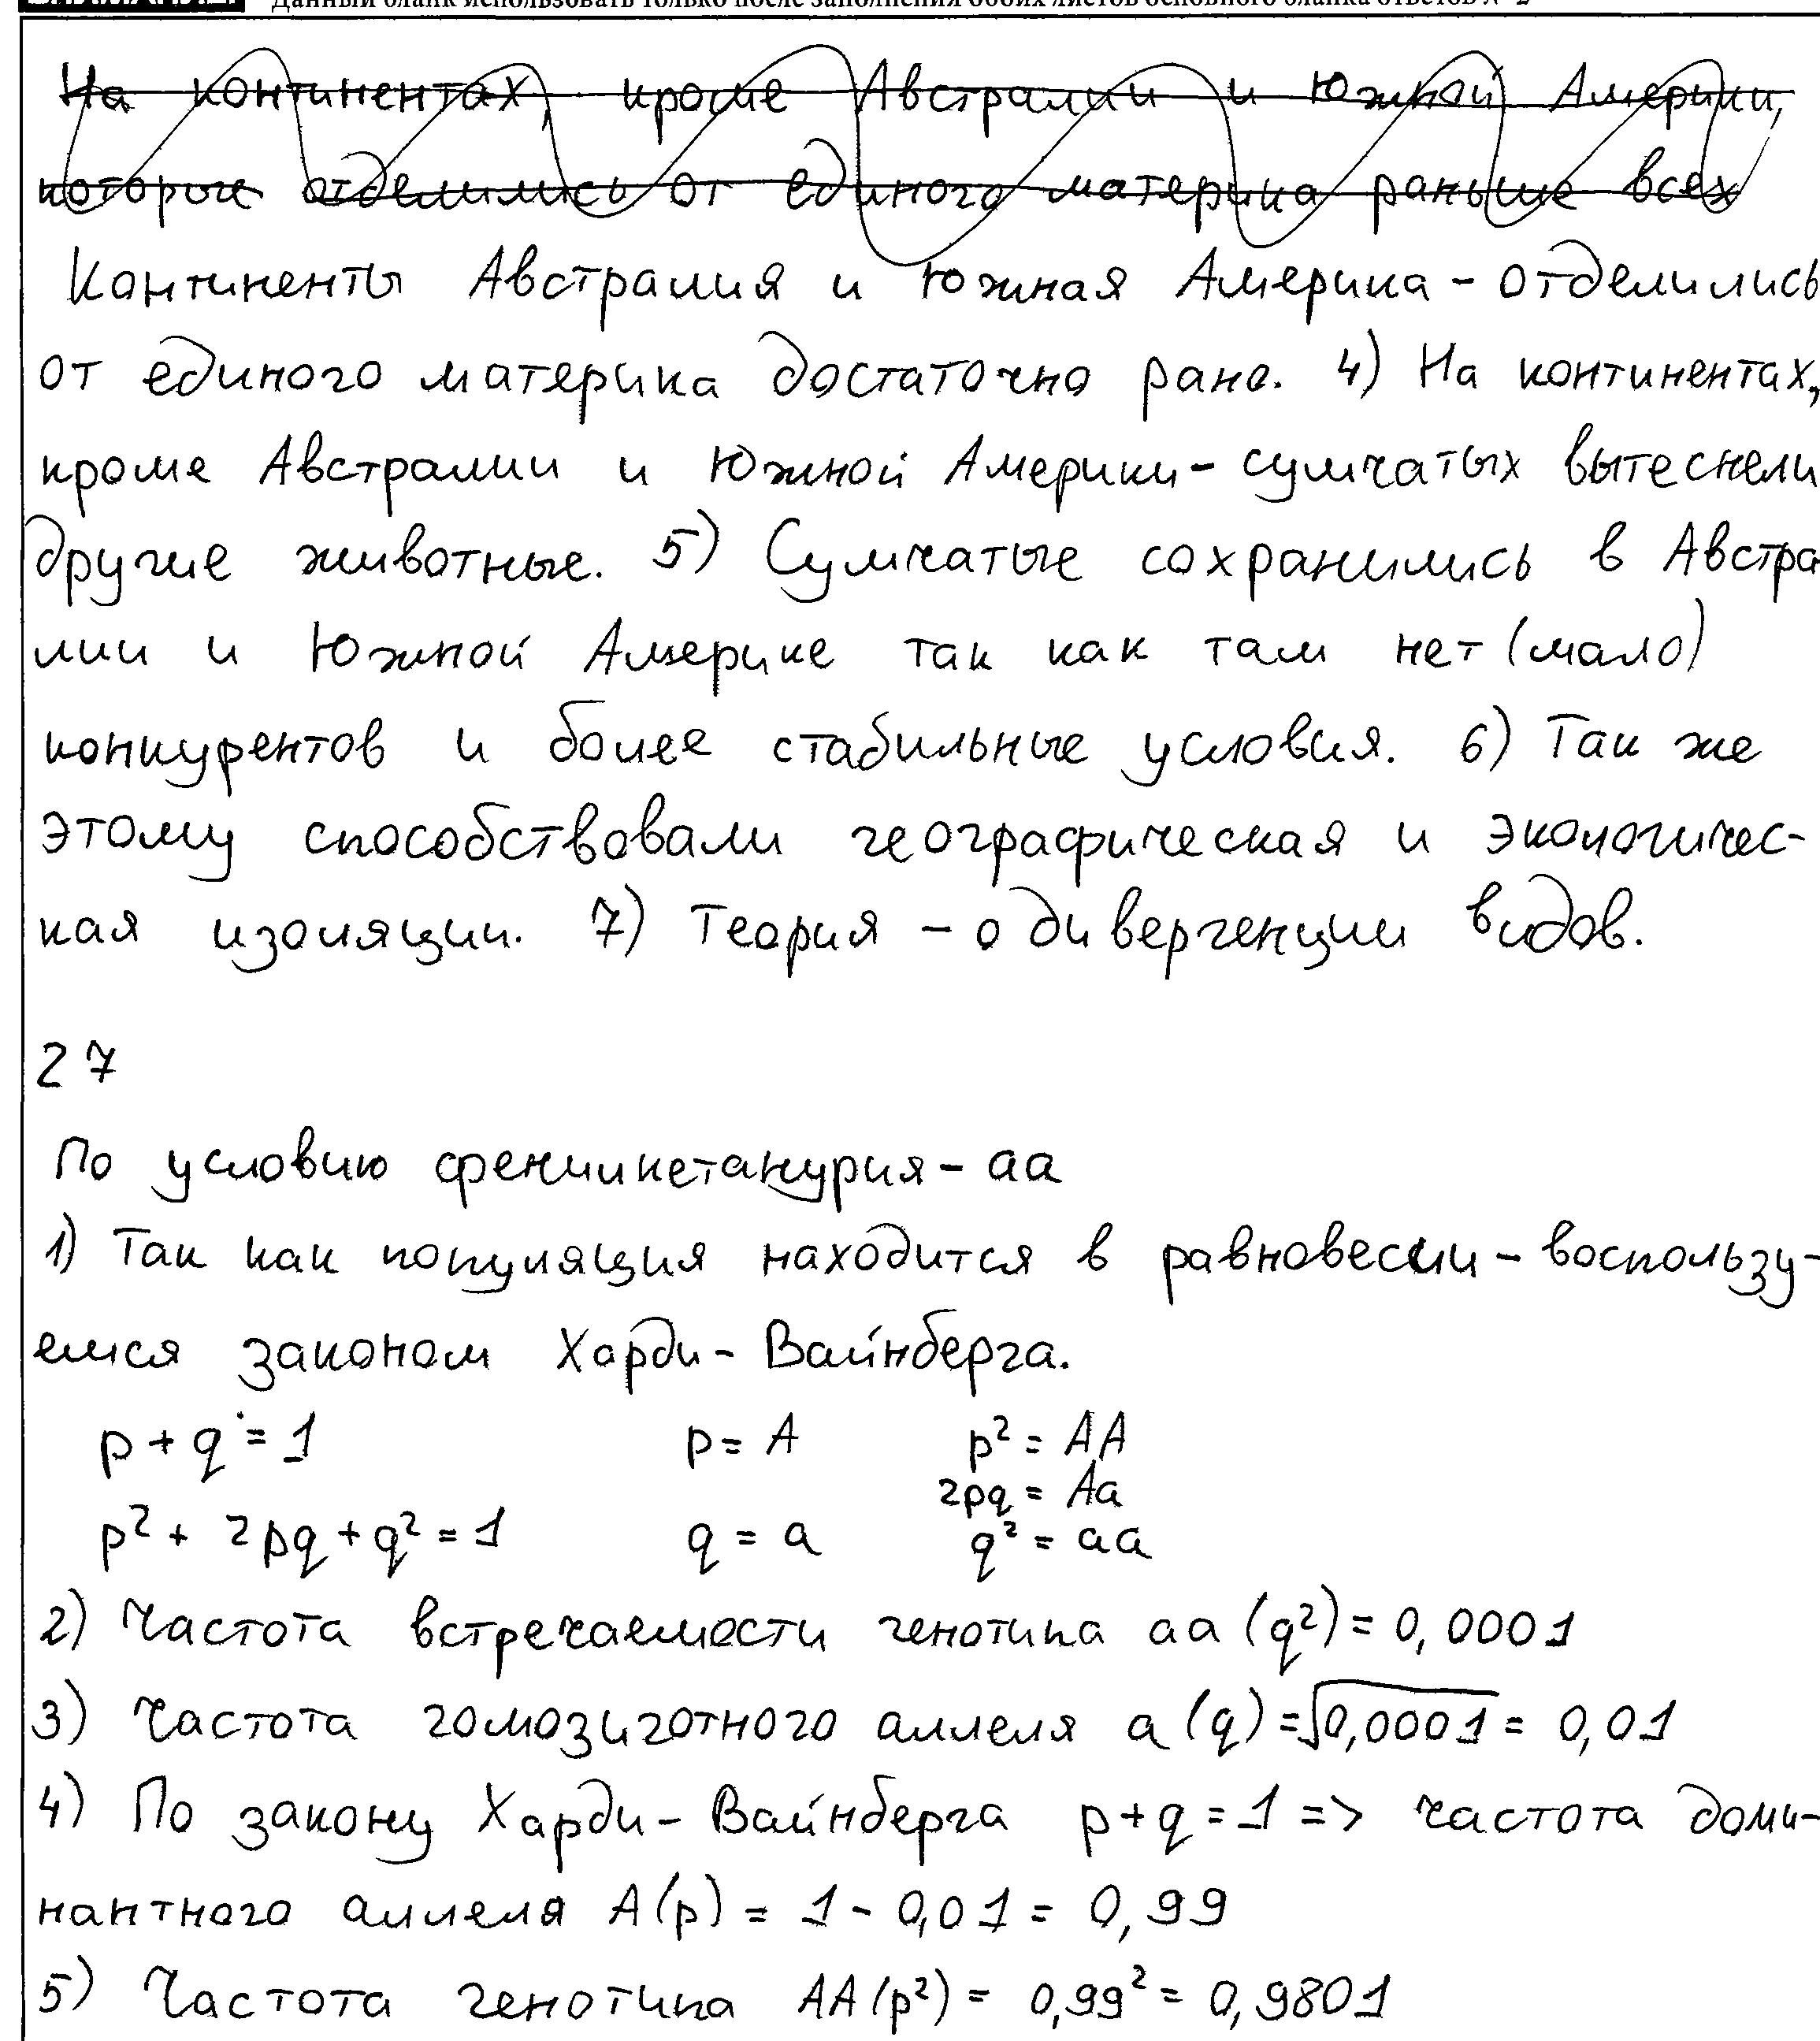 Данный бланк использовать только после заполнения обоих листов основного бланка ответов № 2
На континентах, кроме Австралии и Южной Америки,
которые отделились от единого материка раньше всех
Континенты Австралия и Южная Америка - отделились
от единого материка достаточно рано. 4) На континентах,
кроме Австралии и Южной Америки - сумчатых вытеснели
другие животные. 5) Сумчатые сохранились в Австра-
лии и Южной Америке так как там нет (мало)
конкурентов и более стабильные условия. 6) Так же
этому способствовали географическая и экологичес-
кая изоляции. 7) Теория - о дивергенции видов.
27
По условию фенилкетанурия - аа
1) Так как популяция находится в равновесии - воспользу-
емся законом Харди - Вайнберга.
p + q = 1 p = A p² = AA
2pq = Aa
p² + 2pq + q² = 1 q = a q² = aa
2) Частота встречаемости генотипа aa (q²) = 0,0001
3) Частота гомозиготного аллеля a (q) = √0,0001 = 0,01
4) По закону Харди - Вайнберга p + q = 1 => частота доми-
нантного аллеля A (p) = 1 - 0,01 = 0,99
5) Частота генотипа AA (p²) = 0,99² = 0,9801